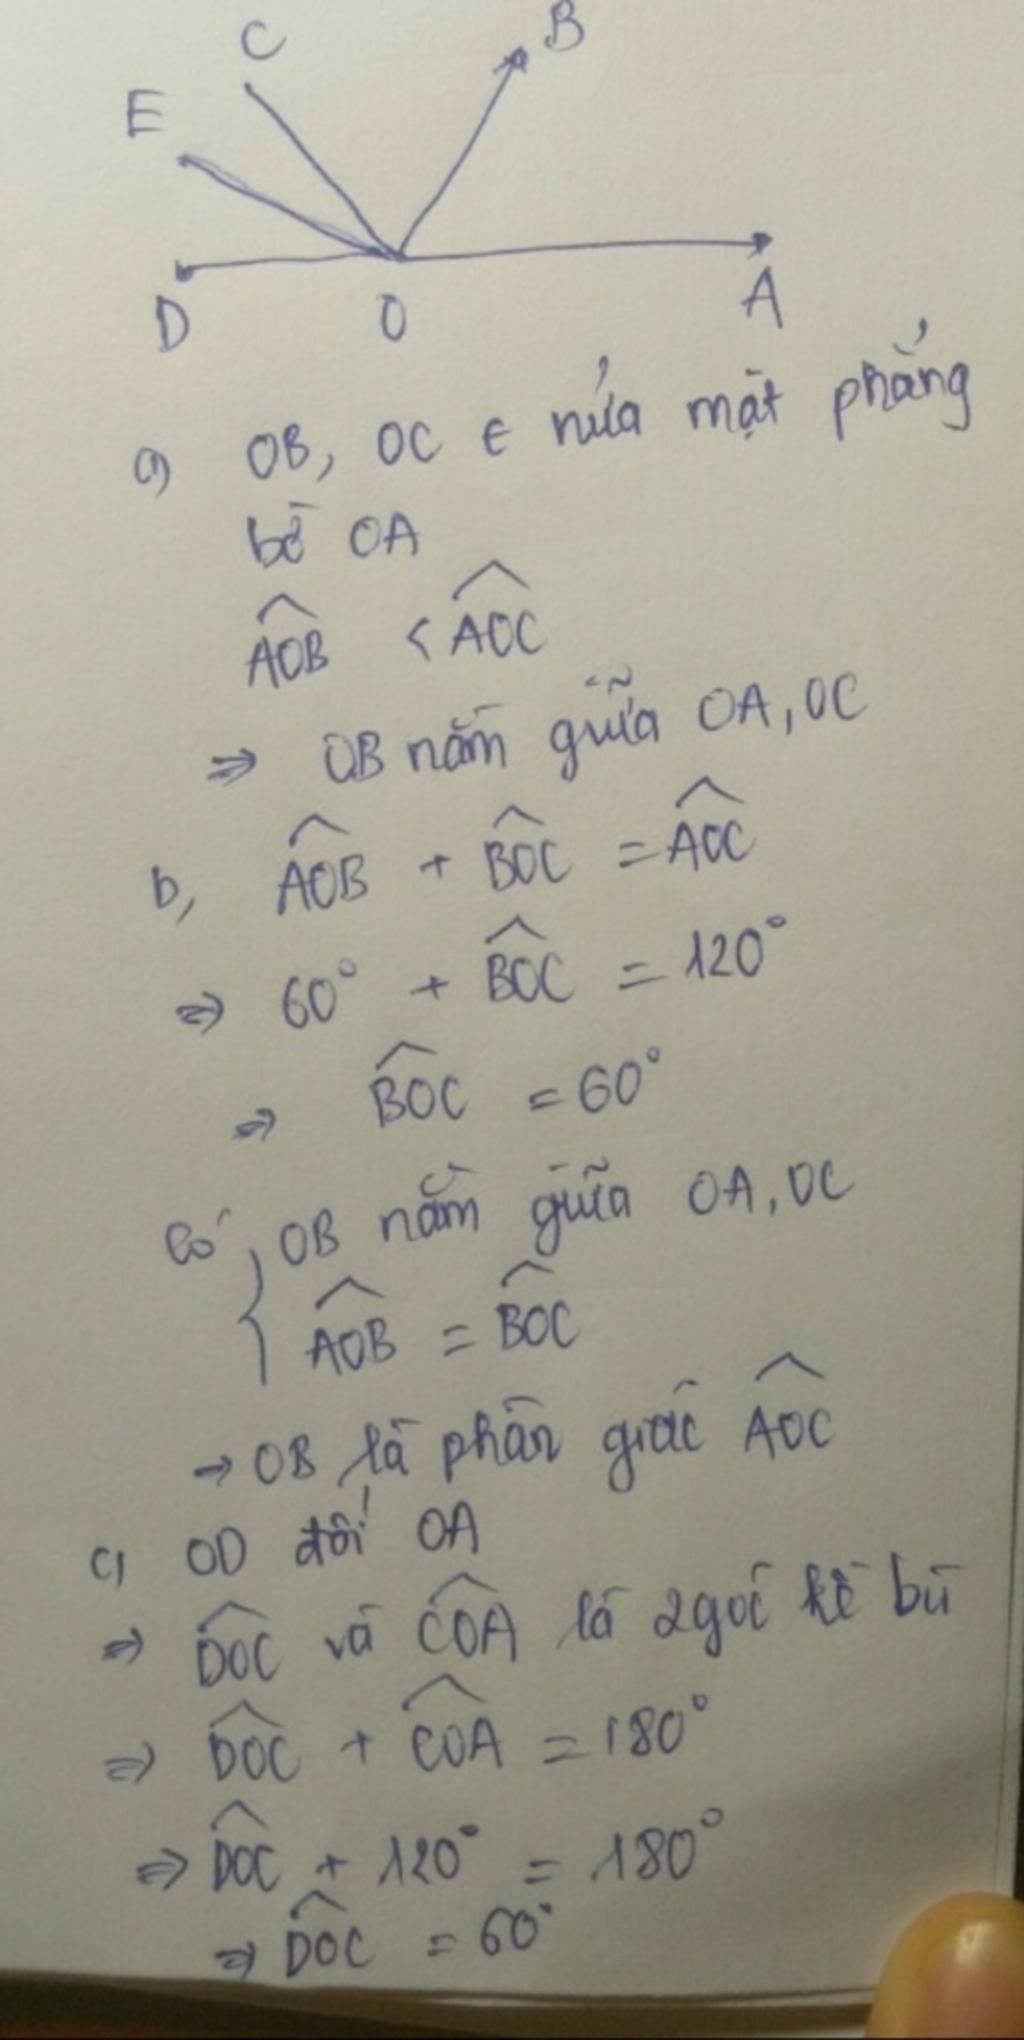 C
B
E
D
O
A
a) OB, OC ∈ nửa mặt phẳng
bờ OA
\widehat{AOB} < \widehat{AOC}
⇒ OB nằm giữa OA, OC
b, \widehat{AOB} + \widehat{BOC} = \widehat{AOC}
⇒ 60° + \widehat{BOC} = 120°
⇒ \widehat{BOC} = 60°
Có { OB nằm giữa OA, OC
\widehat{AOB} = \widehat{BOC}
→ OB là phân giác \widehat{AOC}
c) OD đối OA
⇒ \widehat{DOC} và \widehat{COA} là 2 góc kề bù
⇒ \widehat{DOC} + \widehat{COA} = 180°
⇒ \widehat{DOC} + 120° = 180°
⇒ \widehat{DOC} = 60°